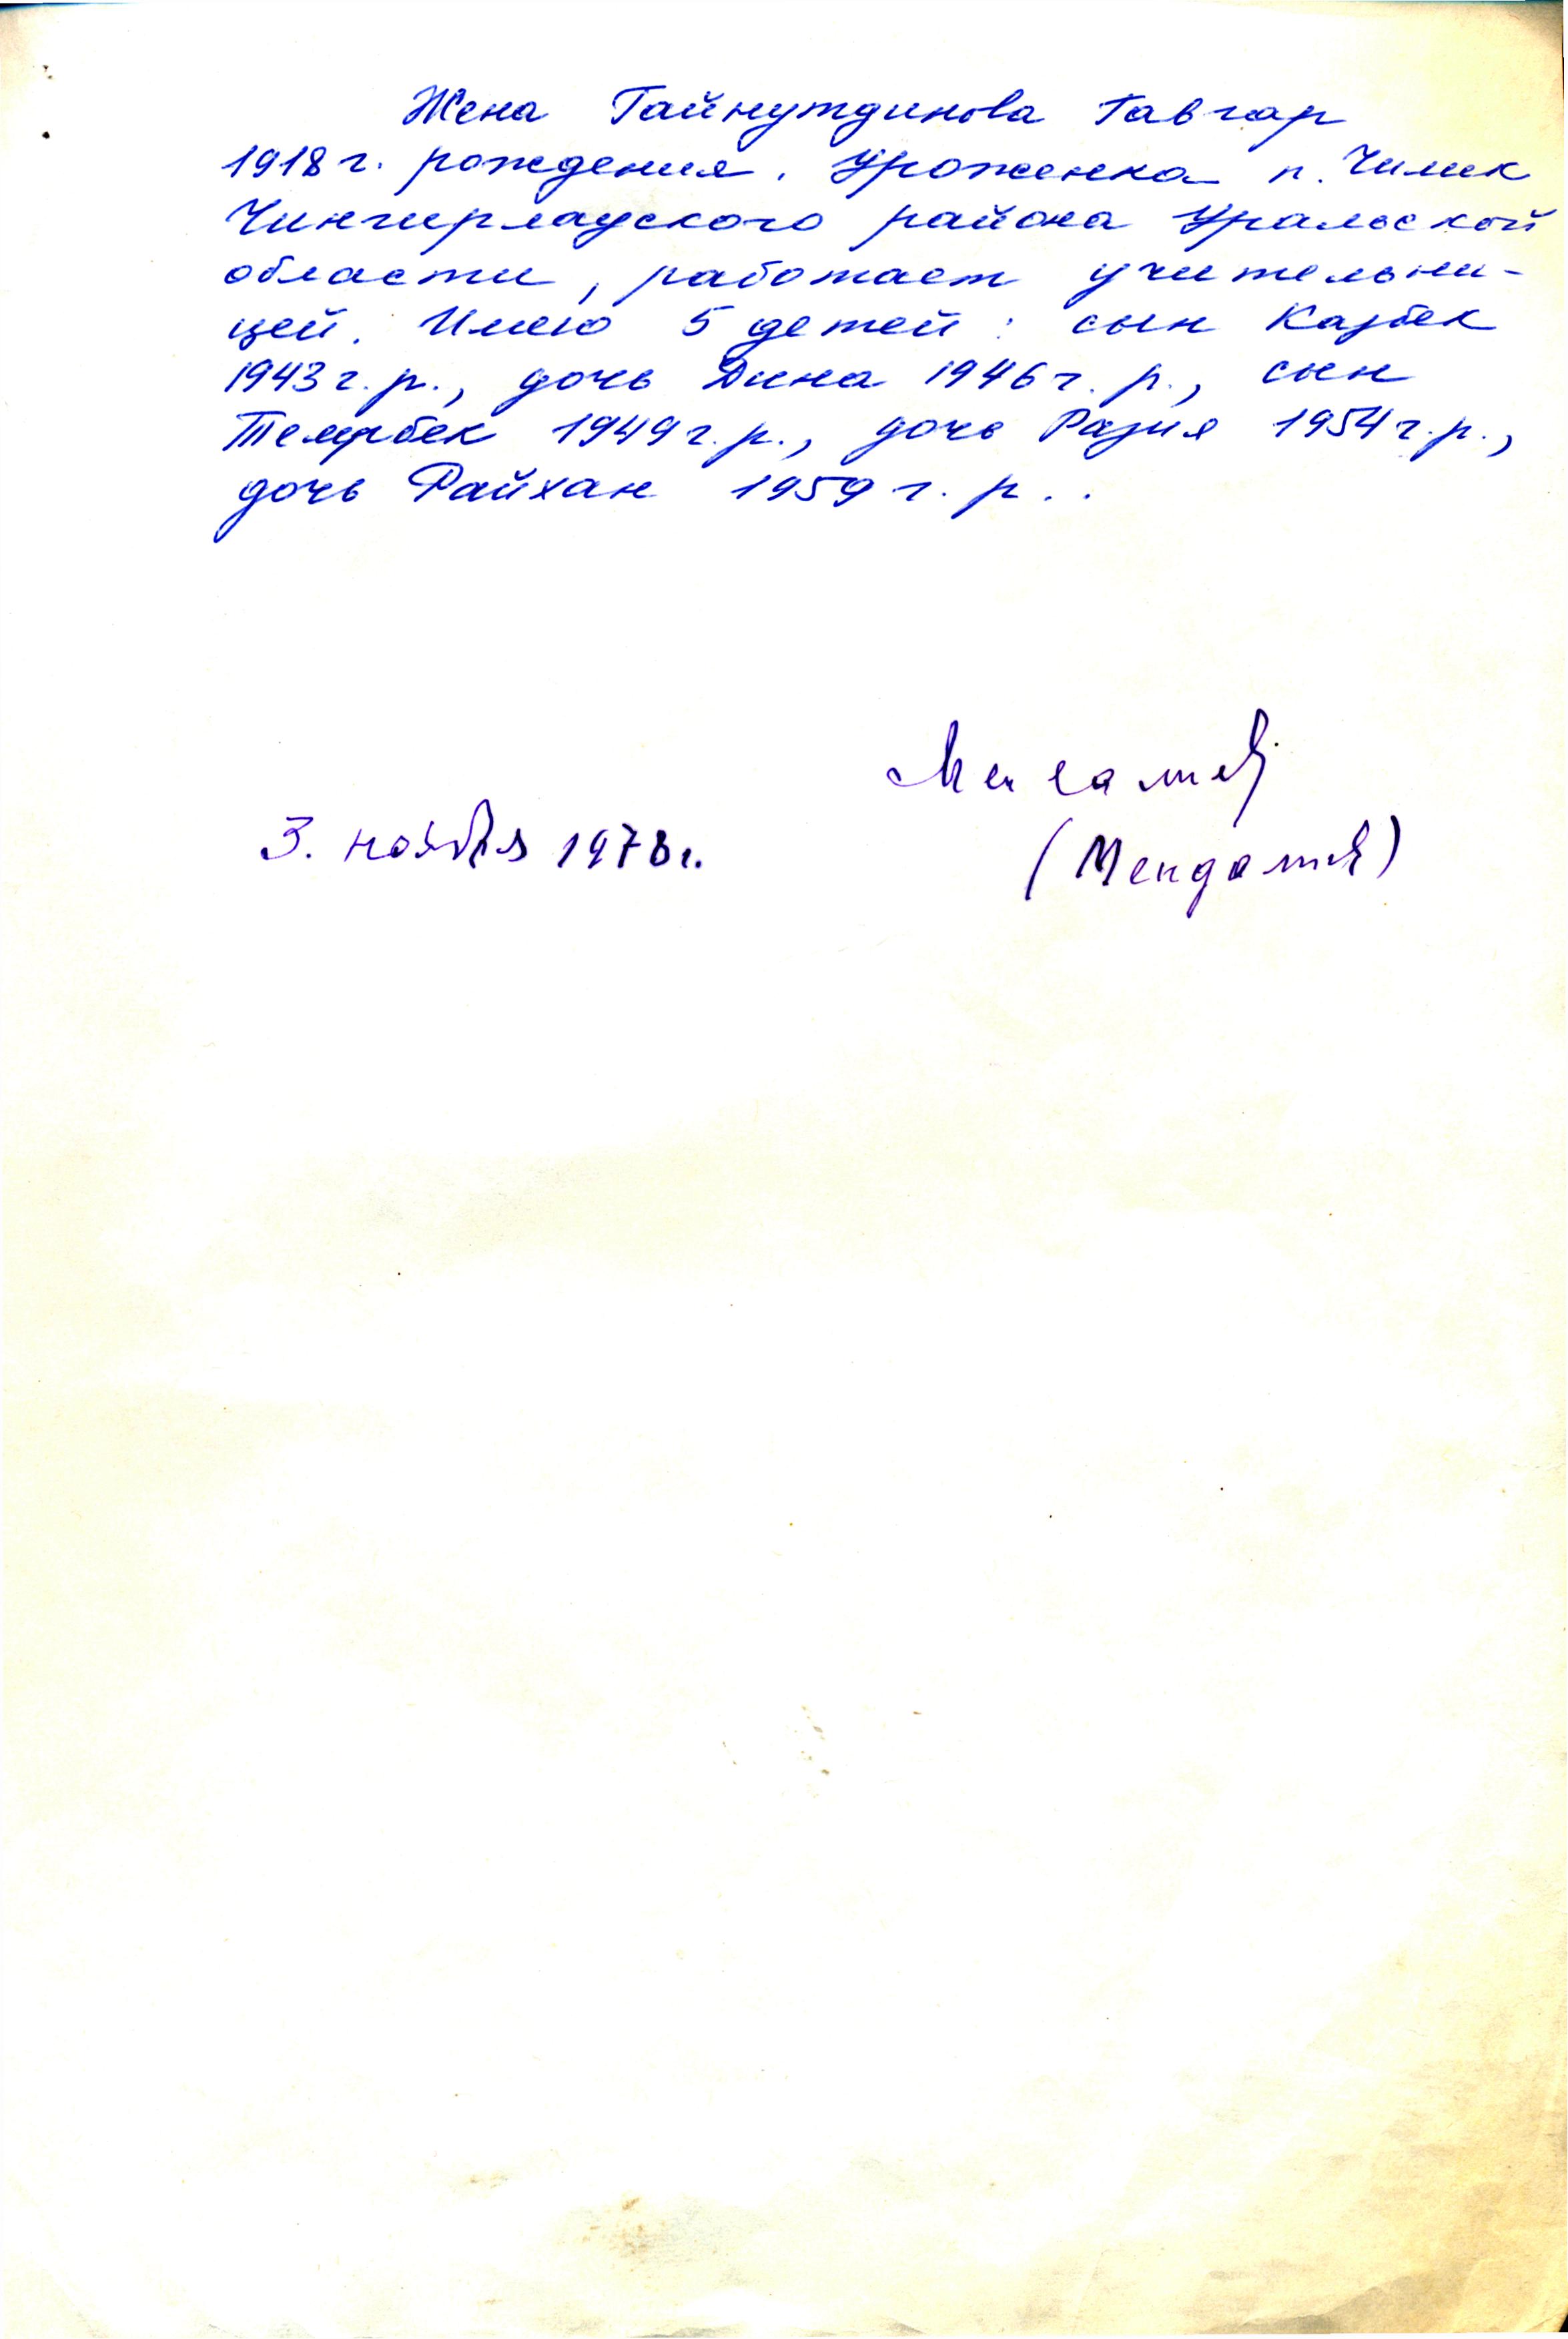 Жена Гайнутдинова Гавгар
1918 г. рождения. Уроженка п. Чилик
Чингирлауского района Уральской
области, работает учительни-
цей. Имею 5 детей: сын Казбек
1943 г. р., дочь Дина 1946 г. р., сын
Темірбек 1949 г. р., дочь Разия 1954 г. р.,
дочь Райхан 1959 г. р..
3. ноября 1978 г.
(Мендалиев)